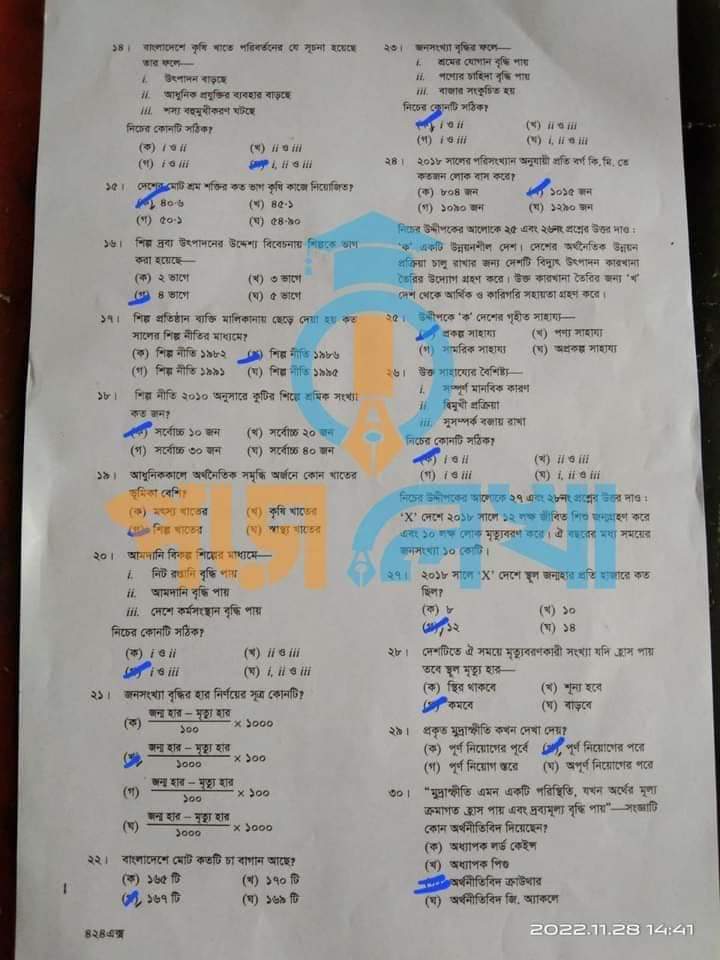 ১৪। বাংলাদেশে কৃষি খাতে পরিবর্তনের যে সূচনা হয়েছে
তার ফলে—
i. উৎপাদন বাড়ছে
ii. আধুনিক প্রযুক্তির ব্যবহার বাড়ছে
iii. শস্য বহুমুখীকরণ ঘটছে
নিচের কোনটি সঠিক?
(ক) i ও ii (খ) ii ও iii
(গ) i ও iii i, ii ও iii
১৫। দেশের মোট শ্রম শক্তির কত ভাগ কৃষি কাজে নিয়োজিত?
(ক) ৪০·৬ (খ) ৪৫·১
(গ) ৫০·১ (ঘ) ৫৪·৯০
১৬। শিল্প দ্রব্য উৎপাদনের উদ্দেশ্য বিবেচনায় শিল্পকে ভাগ
করা হয়েছে—
(ক) ২ ভাগে (খ) ৩ ভাগে
(গ) ৪ ভাগে (ঘ) ৫ ভাগে
১৭। শিল্প প্রতিষ্ঠান ব্যক্তি মালিকানায় ছেড়ে দেয়া হয় কত
সালের শিল্প নীতির মাধ্যমে?
(ক) শিল্প নীতি ১৯৮২ (খ) শিল্প নীতি ১৯৮৬
(গ) শিল্প নীতি ১৯৯১ (ঘ) শিল্প নীতি ১৯৯৫
১৮। শিল্প নীতি ২০১০ অনুসারে কুটির শিল্পে শ্রমিক সংখ্যা
কত জন?
(ক) সর্বোচ্চ ১০ জন (খ) সর্বোচ্চ ২০ জন
(গ) সর্বোচ্চ ৩০ জন (ঘ) সর্বোচ্চ ৪০ জন
১৯। আধুনিককালে অর্থনৈতিক সমৃদ্ধি অর্জনে কোন খাতের
ভূমিকা বেশি?
(ক) মৎস্য খাতের (খ) কৃষি খাতের
(গ) শিল্প খাতের (ঘ) স্বাস্থ্য খাতের
২০। আমদানি বিকল্প শিল্পের মাধ্যমে—
i. নিট রপ্তানি বৃদ্ধি পায়
ii. আমদানি বৃদ্ধি পায়
iii. দেশে কর্মসংস্থান বৃদ্ধি পায়
নিচের কোনটি সঠিক?
(ক) i ও ii (খ) ii ও iii
i ও iii (ঘ) i, ii ও iii
২১। জনসংখ্যা বৃদ্ধির হার নির্ণয়ের সূত্র কোনটি?
(ক) জন্ম হার – মৃত্যু হার / ১০০ × ১০০০
(খ) জন্ম হার – মৃত্যু হার / ১০০০ × ১০০
(গ) জন্ম হার – মৃত্যু হার / ১০০ × ১০০
(ঘ) জন্ম হার – মৃত্যু হার / ১০০০ × ১০০০
২২। বাংলাদেশে মোট কতটি চা বাগান আছে?
(ক) ১৬৫ টি (খ) ১৭০ টি
১৬৭ টি (ঘ) ১৬৯ টি
৪২৪এক্স
২৩। জনসংখ্যা বৃদ্ধির ফলে—
i. শ্রমের যোগান বৃদ্ধি পায়
ii. পণ্যের চাহিদা বৃদ্ধি পায়
iii. বাজার সংকুচিত হয়
নিচের কোনটি সঠিক?
i ও ii (খ) ii ও iii
(গ) i ও iii (ঘ) i, ii ও iii
২৪। ২০১৮ সালের পরিসংখ্যান অনুযায়ী প্রতি বর্গ কি. মি. তে
কতজন লোক বাস করে?
(ক) ৮০৪ জন ১০১৫ জন
(গ) ১০৯০ জন (ঘ) ১২৯০ জন
নিচের উদ্দীপকের আলোকে ২৫ এবং ২৬নং প্রশ্নের উত্তর দাও :
‘ক’ একটি উন্নয়নশীল দেশ। দেশের অর্থনৈতিক উন্নয়ন
প্রক্রিয়া চালু রাখার জন্য দেশটি বিদ্যুৎ উৎপাদন কারখানা
তৈরির উদ্যোগ গ্রহণ করে। উক্ত কারখানা তৈরির জন্য ‘খ’
দেশ থেকে আর্থিক ও কারিগরি সহায়তা গ্রহণ করে।
২৫। উদ্দীপকে ‘ক’ দেশের গৃহীত সাহায্য—
প্রকল্প সাহায্য (খ) পণ্য সাহায্য
(গ) সামরিক সাহায্য (ঘ) অপ্রকল্প সাহায্য
২৬। উক্ত সাহায্যের বৈশিষ্ট্য—
i. সম্পূর্ণ মানবিক কারণ
ii. দ্বিমুখী প্রক্রিয়া
iii. সুসম্পর্ক বজায় রাখা
নিচের কোনটি সঠিক?
(ক) i ও ii (খ) ii ও iii
(গ) i ও iii (ঘ) i, ii ও iii
নিচের উদ্দীপকের আলোকে ২৭ এবং ২৮নং প্রশ্নের উত্তর দাও :
‘X’ দেশে ২০১৮ সালে ১২ লক্ষ জীবিত শিশু জন্মগ্রহণ করে
এবং ১০ লক্ষ লোক মৃত্যুবরণ করে। ঐ বছরের মধ্য সময়ের
জনসংখ্যা ১০ কোটি।
২৭। ২০১৮ সালে ‘X’ দেশে স্থূল জন্মহার প্রতি হাজারে কত
ছিল?
(ক) ৮ (খ) ১০
(গ) ১২ (ঘ) ১৪
২৮। দেশটিতে ঐ সময়ে মৃত্যুবরণকারী সংখ্যা যদি হ্রাস পায়
তবে স্থূল মৃত্যু হার—
(ক) স্থির থাকবে (খ) শূন্য হবে
(গ) কমবে (ঘ) বাড়বে
২৯। প্রকৃত মুদ্রাস্ফীতি কখন দেখা দেয়?
(ক) পূর্ণ নিয়োগের পূর্বে (খ) পূর্ণ নিয়োগের পরে
(গ) পূর্ণ নিয়োগ স্তরে (ঘ) অপূর্ণ নিয়োগের পরে
৩০। “মুদ্রাস্ফীতি এমন একটি পরিস্থিতি, যখন অর্থের মূল্য
ক্রমাগত হ্রাস পায় এবং দ্রব্যমূল্য বৃদ্ধি পায়”—সংজ্ঞাটি
কোন অর্থনীতিবিদ দিয়েছেন?
(ক) অধ্যাপক লর্ড কেইন্স
(খ) অধ্যাপক পিগু
অর্থনীতিবিদ ক্রাউথার
(ঘ) অর্থনীতিবিদ জি. অ্যাকলে
পড়া লেখা
2022.11.28 14:41